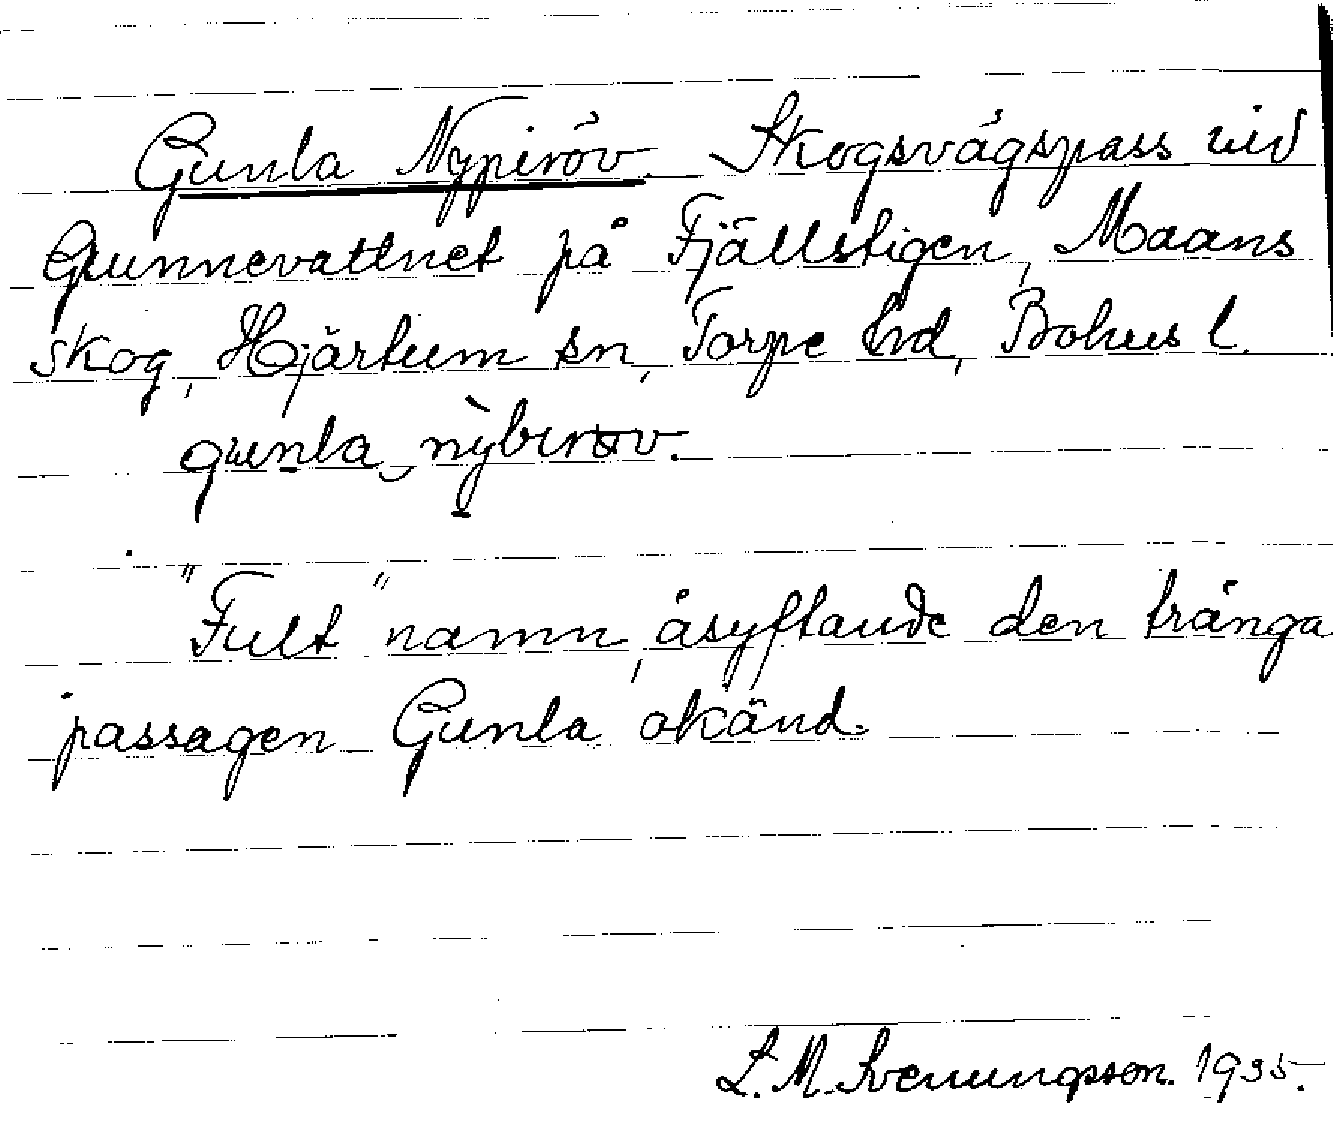 Gunla Nypiröv. Skogsvägspass vid
Gunnevattnet på Fjällstigen, Maans
skog, Hjärtum sn, Torpe hd, Bohus l.
gunla nỳbırɵv.
"Fult" namn, åsyftande den trånga
passagen. Gunla okänd.
L. M. Svenungsson. 1935.